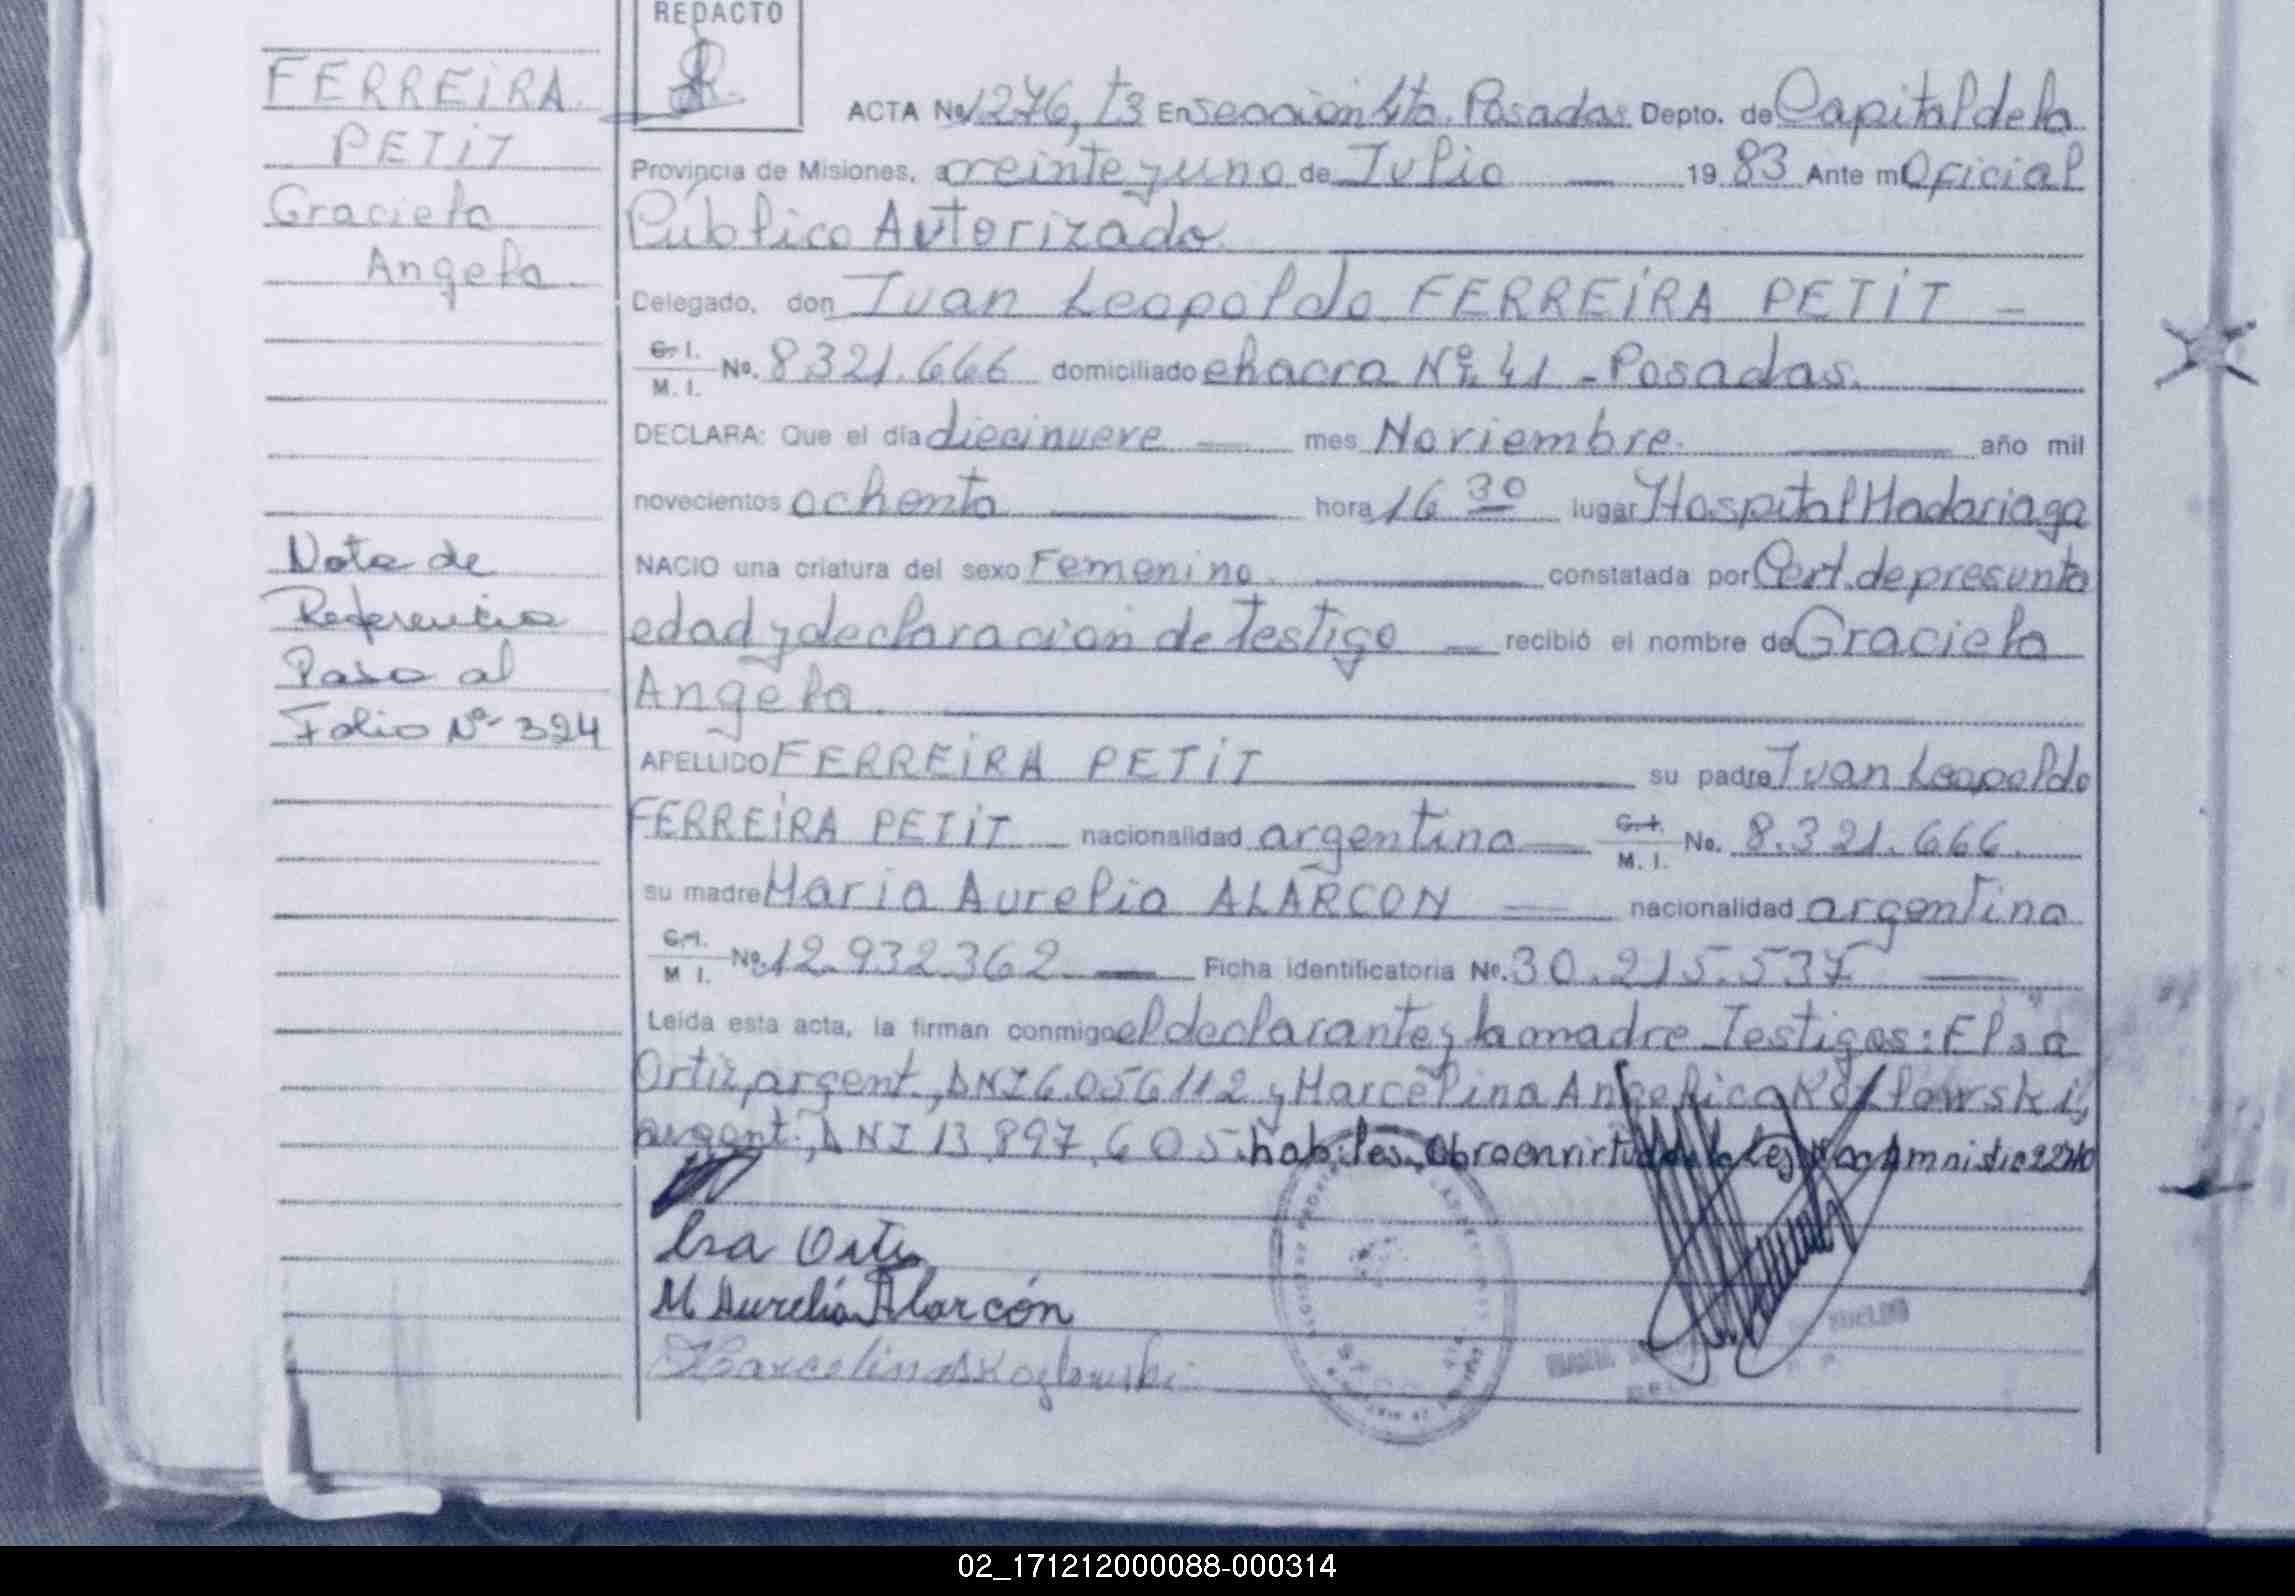 REDACTO
FERREIRA
PETIT
Graciela
Angela
ACTA No 1276, t3 En sección 4ta. Posadas Depto. de Capital de la
Provincia de Misiones, a veinte y uno de Julio 19 83 Ante mi Oficial
Público Autorizado
Delegado, don Juan Leopoldo FERREIRA PETIT
C. I.
M. I. No. 8321.666 domiciliado chacra Nº 41 - Posadas.
DECLARA: Que el día diecinueve mes Noviembre. año mil
novecientos ochenta hora 16 30 lugar Hospital Madariaga
NACIO una criatura del sexo Femenino constatada por Cert. de presunta
edad y declaración de testigo recibió el nombre de Graciela
Angela.
APELLIDO FERREIRA PETIT su padre Juan Leopoldo
FERREIRA PETIT nacionalidad argentina C. I.
M. I. No. 8.321.666.
su madre Maria Aurelia ALARCON nacionalidad argentina
C. I.
M. I. No. 12.932.362 Ficha identificatoria No. 30.215.537
Leída esta acta, la firman conmigo el declarante y la madre Testigos: Elsa
Ortiz, argent., DNI 6.056112 y Marcelina Angelica Kozlowski,
argent., DNI 13.897.605. habiles. Obra en virtud de la Ley Amnistia
Nota de
Referencia
Pasa al
Folio Nº 324
Elsa Ortiz
M Aurelia Alarcón
Marcelina A Kozlowski
02_171212000088-000314